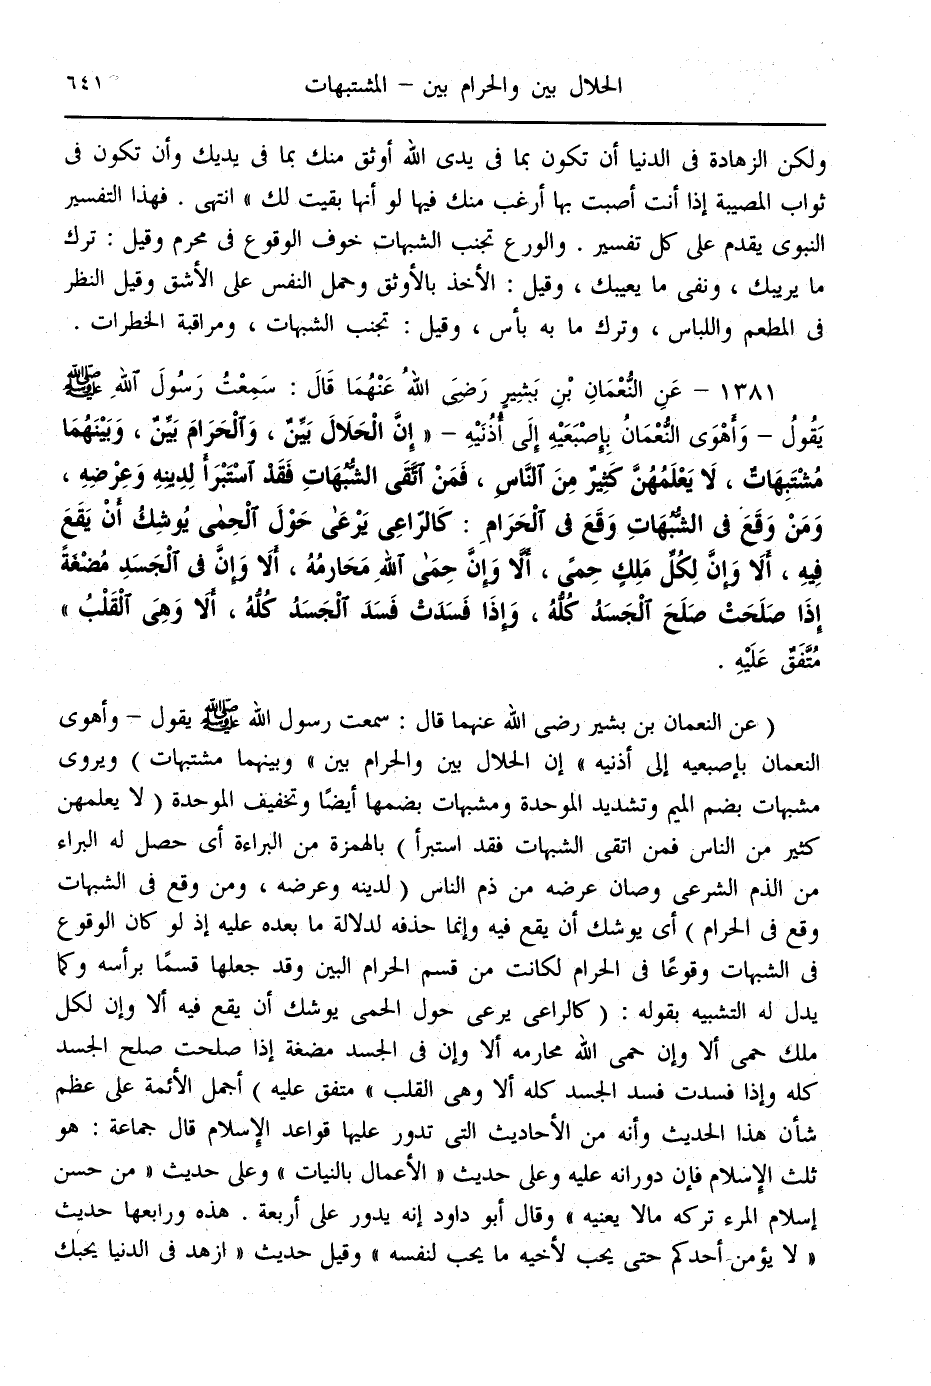 الحلال بين والحرام بين – المشتبهات ٦٤١
ولكن الزهادة فى الدنيا أن تكون بما فى يدى الله أوثق منك بما فى يديك وأن تكون فى
ثواب المصيبة إذا أنت أصبت بها أرغب منك فيها لو أنها بقيت لك » انتهى . فهذا التفسير
النبوى يقدم على كل تفسير . والورع تجنب الشبهات خوف الوقوع فى محرم وقيل : ترك
ما يريبك ، ونفى ما يعيبك ، وقيل : الأخذ بالأوثق وحمل النفس على الأشق وقيل النظر
فى المطعم واللباس ، وترك ما به بأس ، وقيل : تجنب الشبهات ، ومراقبة الخطرات .
١٣٨١ – عَنِ النُّعْمَانِ بْنِ بَشِيرٍ رَضِىَ اللهُ عَنْهُمَا قَالَ : سَمِعْتُ رَسُولَ اللهِ ﷺ
يَقُولُ – وَأَهْوَى النُّعْمَانُ بِإِصْبَعَيْهِ إِلَى أُذُنَيْهِ – « إِنَّ الْحَلَالَ بَيِّنٌ ، وَالْحَرَامَ بَيِّنٌ ، وَبَيْنَهُمَا
مُشْتَبِهَاتٌ ، لَا يَعْلَمُهُنَّ كَثِيرٌ مِنَ النَّاسِ ، فَمَنْ اتَّقَى الشُّبُهَاتِ فَقَدْ اسْتَبْرَأَ لِدِينِهِ وَعِرْضِهِ ،
وَمَنْ وَقَعَ فى الشُّبُهَاتِ وَقَعَ فى الْحَرَامِ : كَالرَّاعِى يَرْعَى حَوْلَ الْحِمَى يُوشِكُ أَنْ يَقَعَ
فِيهِ ، أَلَا وَإِنَّ لِكُلِّ مَلِكٍ حِمىً ، أَلَا وَإِنَّ حِمَى اللهِ مَحَارِمُهُ ، أَلَا وَإِنَّ فى الْجَسَدِ مُضْغَةً
إِذَا صَلَحَتْ صَلَحَ الْجَسَدُ كُلُّهُ ، وَإِذَا فَسَدَتْ فَسَدَ الْجَسَدُ كُلُّهُ ، أَلَا وَهِىَ الْقَلْبُ »
مُتَّفَقٌ عَلَيْهِ .
( عن النعمان بن بشير رضى الله عنهما قال : سمعت رسول الله ﷺ يقول – وأهوى
النعمان بإصبعيه إلى أذنيه » إن الحلال بين والحرام بين » وبينهما مشتبهات ) ويروى
مشبهات بضم الميم وتشديد الموحدة ومشبهات بضمها أيضًا وتخفيف الموحدة ( لا يعلمهن
كثير من الناس فمن اتقى الشبهات فقد استبرأ ) بالهمزة من البراءة أى حصل له البراء
من الذم الشرعى وصان عرضه من ذم الناس ( لدينه وعرضه ، ومن وقع فى الشبهات
وقع فى الحرام ) أى يوشك أن يقع فيه وإنما حذفه لدلالة ما بعده عليه إذ لو كان الوقوع
فى الشبهات وقوعًا فى الحرام لكانت من قسم الحرام البين وقد جعلها قسمًا برأسه وكما
يدل له التشبيه بقوله : ( كالراعى يرعى حول الحمى يوشك أن يقع فيه ألا وإن لكل
ملك حمى ألا وإن حمى الله محارمه ألا وإن فى الجسد مضغة إذا صلحت صلح الجسد
كله وإذا فسدت فسد الجسد كله ألا وهى القلب » متفق عليه ) أجمل الأئمة على عظم
شأن هذا الحديث وأنه من الأحاديث التى تدور عليها قواعد الإسلام قال جماعة : هو
ثلث الإسلام فإن دورانه عليه وعلى حديث « الأعمال بالنيات » وعلى حديث « من حسن
إسلام المرء تركه مالا يعنيه » وقال أبو داود إنه يدور على أربعة . هذه ورابعها حديث
« لا يؤمن أحدكم حتى يحب لأخيه ما يحب لنفسه » وقيل حديث « ازهد فى الدنيا يحبك